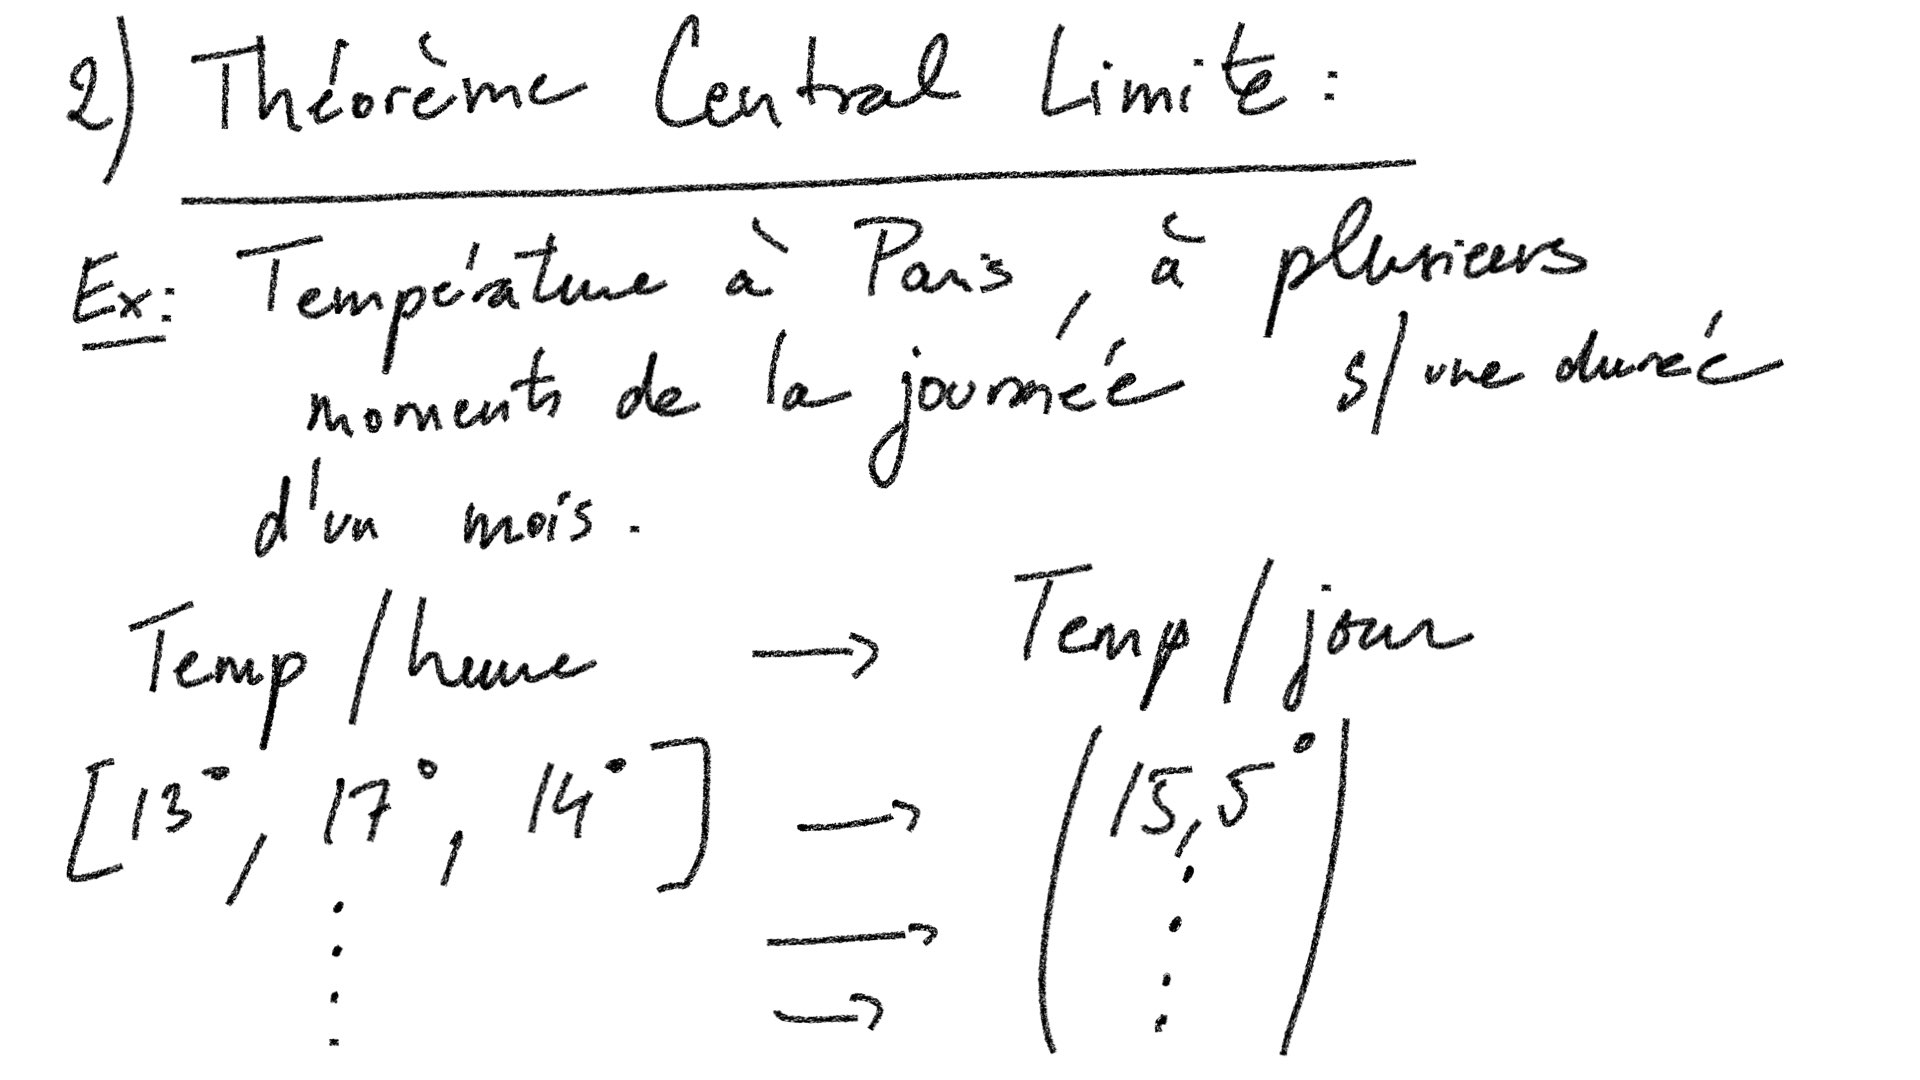 2) Théorème Central Limite :
Ex: Température à Paris, à plusieurs
moments de la journée s/ une durée
d'un mois.
Temp / heure → Temp / jour
[13°, 17°, 14°] → (15,5°)
→
→